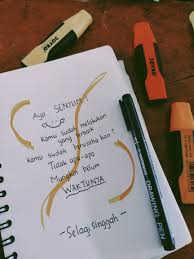 Ayo SENYUM!
Kamu sudah melakukan
yang terbaik
Kamu sudah berusaha kan?
Tidak apa-apa
Mungkin belum
WAKTUNYA
-Selagi singgah-
DRAWING PEN